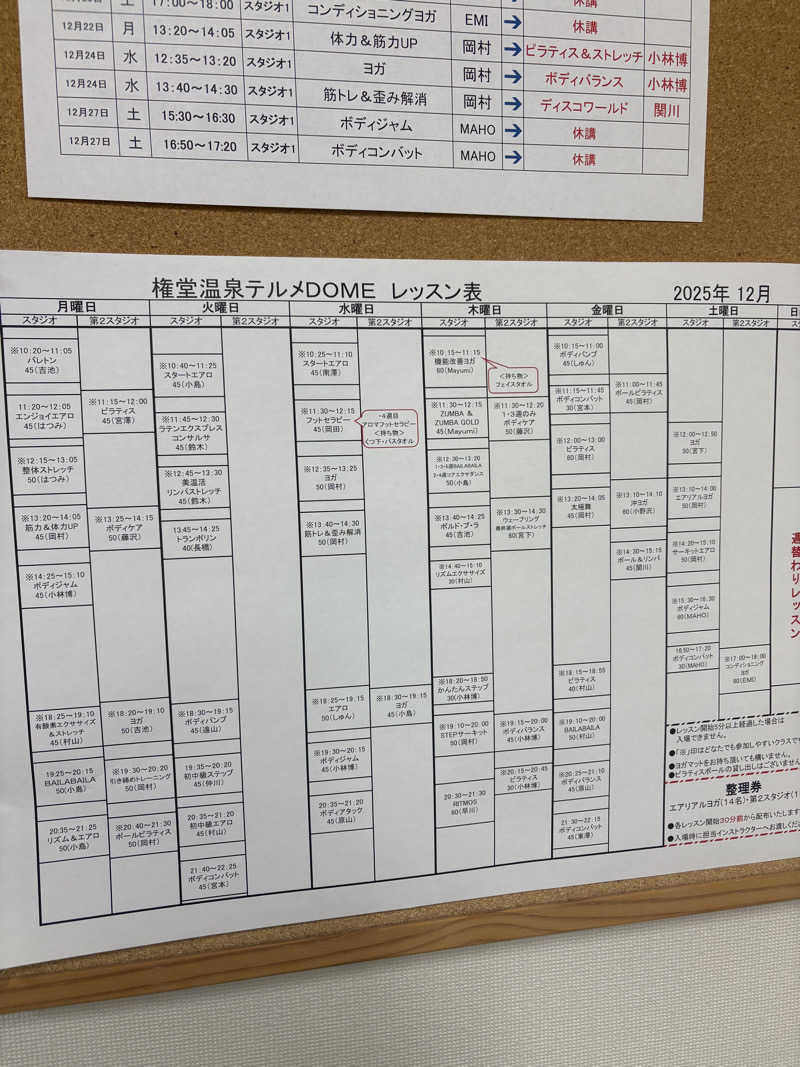 土 17:00～18:00 スタジオ1 コンディショニングヨガ EMI → 休講
12月22日 月 13:20～14:05 スタジオ1 体力＆筋力UP 岡村 → ピラティス＆ストレッチ 小林博
12月24日 水 12:35～13:20 スタジオ1 ヨガ 岡村 → ボディバランス 小林博
12月24日 水 13:40～14:30 スタジオ1 筋トレ＆歪み解消 岡村 → ディスコワールド 関川
12月27日 土 15:30～16:30 スタジオ1 ボディジャム MAHO → 休講
12月27日 土 16:50～17:20 スタジオ1 ボディコンバット MAHO → 休講
権堂温泉テルメDOME レッスン表
2025年 12月
月曜日
スタジオ 第2スタジオ
※10:20～11:05
バレトン
45(吉池)
11:20～12:05
エンジョイエアロ
45(はつみ)
※12:15～13:05
整体ストレッチ
50(はつみ)
※13:20～14:05
筋力＆体力UP
45(岡村)
※14:25～15:10
ボディジャム
45(小林博)
※18:25～19:10
有酸素エクササイズ
＆ストレッチ
45(村山)
19:25～20:15
BAILABAILA
50(小島)
20:35～21:25
リズム＆エアロ
50(小島)
※11:15～12:00
ピラティス
45(宮澤)
※13:25～14:15
ボディケア
50(藤沢)
※18:20～19:10
ヨガ
50(吉池)
※19:30～20:20
引き締めトレーニング
50(岡村)
※20:40～21:30
ポールピラティス
50(岡村)
火曜日
スタジオ 第2スタジオ
※10:40～11:25
スタートエアロ
45(小島)
※11:45～12:30
ラテンエクスプレス
コンサルサ
45(鈴木)
※12:45～13:30
美温活
リンパストレッチ
45(鈴木)
13:45～14:25
トランポリン
40(長橋)
※18:30～19:15
ボディパンプ
45(遠山)
※19:35～20:20
初中級ステップ
45(仲川)
20:35～21:20
初中級エアロ
45(村山)
21:40～22:25
ボディコンバット
45(宮本)
水曜日
スタジオ 第2スタジオ
※10:25～11:10
スタートエアロ
45(南澤)
※11:30～12:15
フットセラピー
45(岡田)
・4週目
アロマフットセラピー
＜持ち物＞
くつ下・バスタオル
※12:35～13:25
ヨガ
50(岡村)
※13:40～14:30
筋トレ＆歪み解消
50(岡村)
※18:25～19:15
エアロ
50(しゅん)
※19:30～20:15
ボディジャム
45(小林博)
20:35～21:20
ボディアタック
45(原山)
※18:30～19:15
ヨガ
45(小島)
木曜日
スタジオ 第2スタジオ
※10:15～11:15
機能改善ヨガ
60(Mayumi)
＜持ち物＞
フェイスタオル
※11:30～12:15
ZUMBA ＆
ZUMBA GOLD
45(Mayumi)
※12:30～13:20
1・3・5週BAILABAILA
2・4週コアエクササダンス
50(小島)
※13:40～14:25
ポルド・ブ・ラ
45(吉池)
※14:40～15:10
リズムエクササイズ
30(村山)
※18:20～18:50
かんたんステップ
30(小林博)
※19:10～20:00
STEPサーキット
50(岡村)
20:30～21:30
RITMOS
60(早川)
※11:30～12:20
1・3週のみ
ボディケア
50(藤沢)
※13:30～14:30
ウェーブリング
最終週ポールストレッチ
60(宮下)
※19:15～20:00
ボディバランス
45(小林博)
※20:15～20:45
ピラティス
30(小林博)
金曜日
スタジオ 第2スタジオ
※10:15～11:00
ボディパンプ
45(しゅん)
※11:15～11:45
ボディコンバット
30(宮本)
※12:00～13:00
ピラティス
60(岡村)
※13:20～14:05
太極舞
45(岡村)
※18:15～18:55
ピラティス
40(村山)
※19:10～20:00
BAILABAILA
50(村山)
※20:25～21:10
ボディバランス
45(原山)
21:30～22:15
ボディコンバット
45(東澤)
※11:00～11:45
ポールピラティス
45(岡村)
※13:10～14:10
沖ヨガ
60(小野沢)
※14:30～15:15
ポール＆リンパ
45(関川)
土曜日
スタジオ 第2スタジオ
※12:00～12:50
ヨガ
50(宮下)
※13:10～14:00
エアリアルヨガ
50(岡村)
※14:20～15:10
サーキットエアロ
50(岡村)
※15:30～16:30
ボディジャム
60(MAHO)
16:50～17:20
ボディコンバット
30(MAHO)
※17:00～18:00
コンディショニング
ヨガ
60(EMI)
週替わりレッスン
●レッスン開始5分以上経過した場合は
入場できません。
●「※」印はどなたでも参加しやすいクラスで
●ヨガマットをお持ち頂いても構いません。
●ピラティスボールの貸し出しはございません
整理券
エアリアルヨガ(14名)・第2スタジオ(1
●各レッスン開始30分前から配布いたします
●入場時に担当インストラクターへお渡しくだ